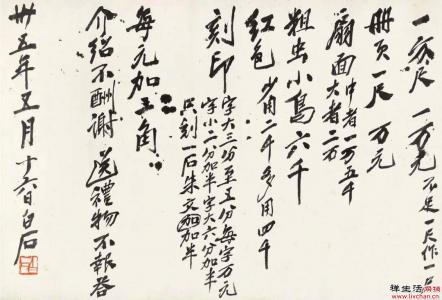 一方尺 一万元 不足一尺作一尺
册页一尺 万元
扇面 中者一万五千
大者二万
粗虫小鸟六千
红色 少用二千多用四千
刻印 字大三分至五分每字万元
字小二分加半字大六分加半
只刻一石朱文加半
每元加三角
介绍不酬谢 送禮物不報答
卅五年五月十六日白石
祥生活网摘
www.livchan.cn